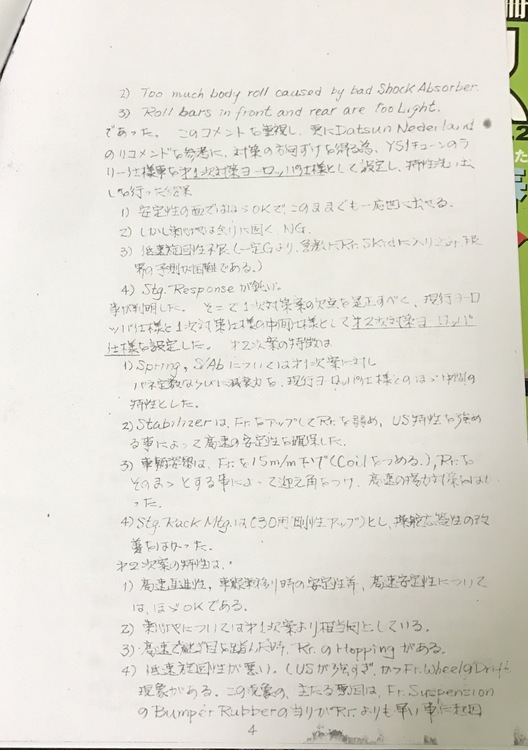 2) Too much body roll caused by bad Shock Absorber.
3) Roll bars in front and rear are too Light.
であった。このコメントを重視し、更にDatsun Nederland
のリコメンドを参考に、対策の方向ずけを得る為、Y51チューンのラ
リー仕様車を才1次対策ヨーロッパ仕様として設定し、特性洗い出
しを行った結果
1) 安定性の面ではほゞOKで、このままでも一応出せる。
2) しかし乗心地は余りに固く NG.
3) 低速旋回性不良(一定Gより、急激にRr. Skidに入り込み限
界の予測が困難である。)
4) Stg. Responseが鈍い。
事が判明した。そこで1次対策案の欠点を是正すべく、現行ヨーロ
ッパ仕様と1次対策仕様の中間仕様として才2次対策ヨーロッパ
仕様を設定した。才2次案の特徴は
1) Spring, S/Abについては才1次案に対し
バネ定数ならびに減衰力を、現行ヨーロッパ仕様とのほゞ中間の
特性とした。
2) Stabilizerは、Fr.をアップしてRr.を弱め、US特性を強め
る事によって高速の安定性を確保した。
3) 車輌姿勢は、Fr.を15m/m下げ(Coilをつめる.), Rr.を
そのまゝとする事によって迎え角をつけ、高速の揚力対策をはか
った。
4) Stg. Rack Mtg.は(30円 剛性アップ)とし、操舵応答性の改
善をはかった。
才2次案の特性は、
1) 高速直進性、車線乗移り時の安定性等、高速安定性について
は、ほゞOKである。
2) 乗心地については才1次案より相当向上している。
3) 高速で継ぎ目を踏んだ時、Rr.のHoppingがある。
4) 低速旋回性が悪い。(USが強すぎ、かつFr. WheelのDrift
現象がある。この現象の主たる要因は、Fr. Suspension
のBumper Rubberの当りがRr.よりも早い事に起因
4